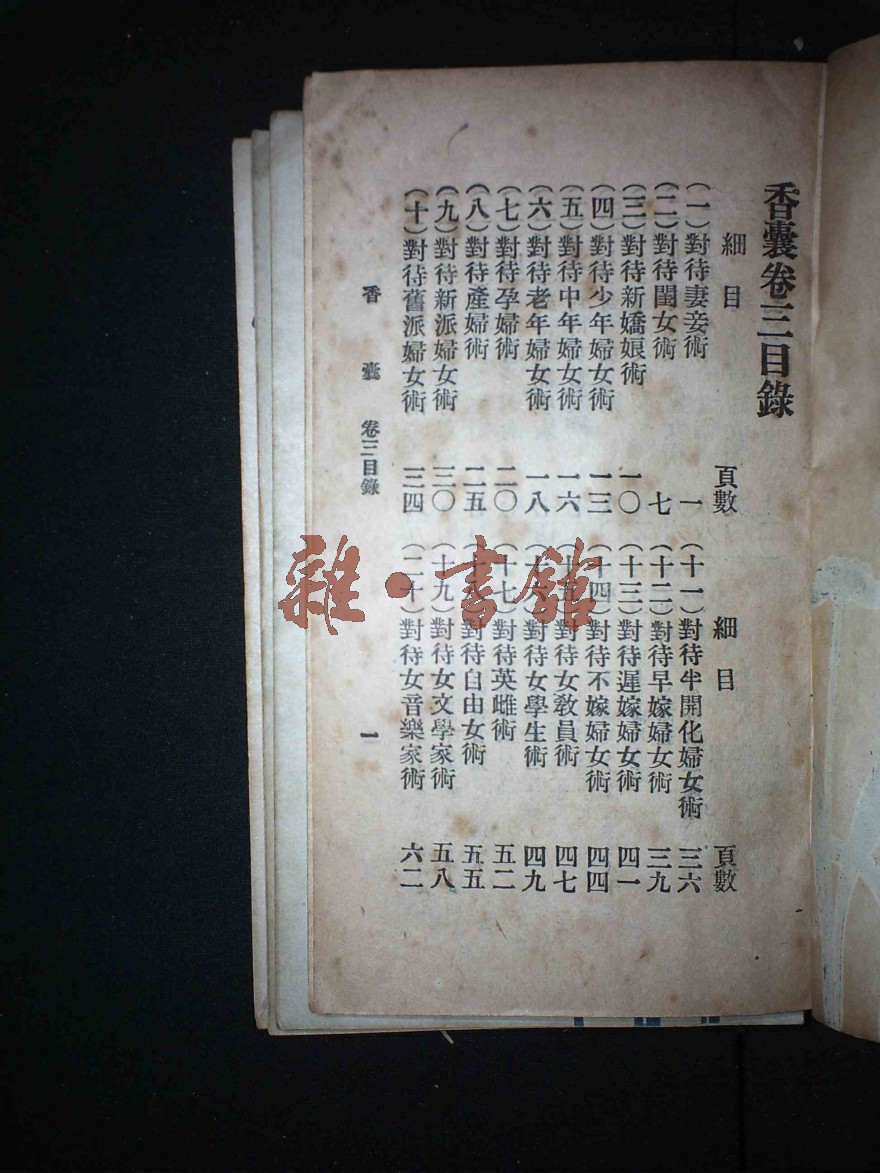 香囊卷三目錄
細目 頁數
(一)對待妻妾術 一
(二)對待閨女術 七
(三)對待新嬌娘術 一〇
(四)對待少年婦女術 一三
(五)對待中年婦女術 一六
(六)對待老年婦女術 一八
(七)對待孕婦術 二〇
(八)對待產婦術 二五
(九)對待新派婦女術 三〇
(十)對待舊派婦女術 三四
細目 頁數
(十一)對待半開化婦女術 三六
(十二)對待早嫁婦女術 三九
(十三)對待遲嫁婦女術 四一
(十四)對待不嫁婦女術 四四
(十五)對待女教員術 四七
(十六)對待女學生術 四九
(十七)對待英雌術 五二
(十八)對待自由女術 五五
(十九)對待女文學家術 五八
(二十)對待女音樂家術 六二
香囊 卷三目錄 一
雜·書館